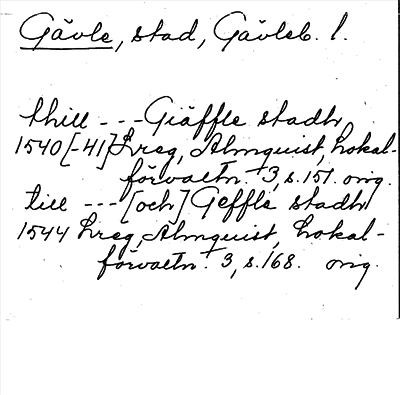 Gävle, stad, Gävleb. l.
thill --- Giäffle stadh
1540 [-41] Lreg, Almquist, Lokal-
förvaltn. + 3, s. 151. orig.
till --- [och] Geffle stadh
1544 Lreg, Almquist, Lokal-
förvaltn. + 3, s. 168. orig.